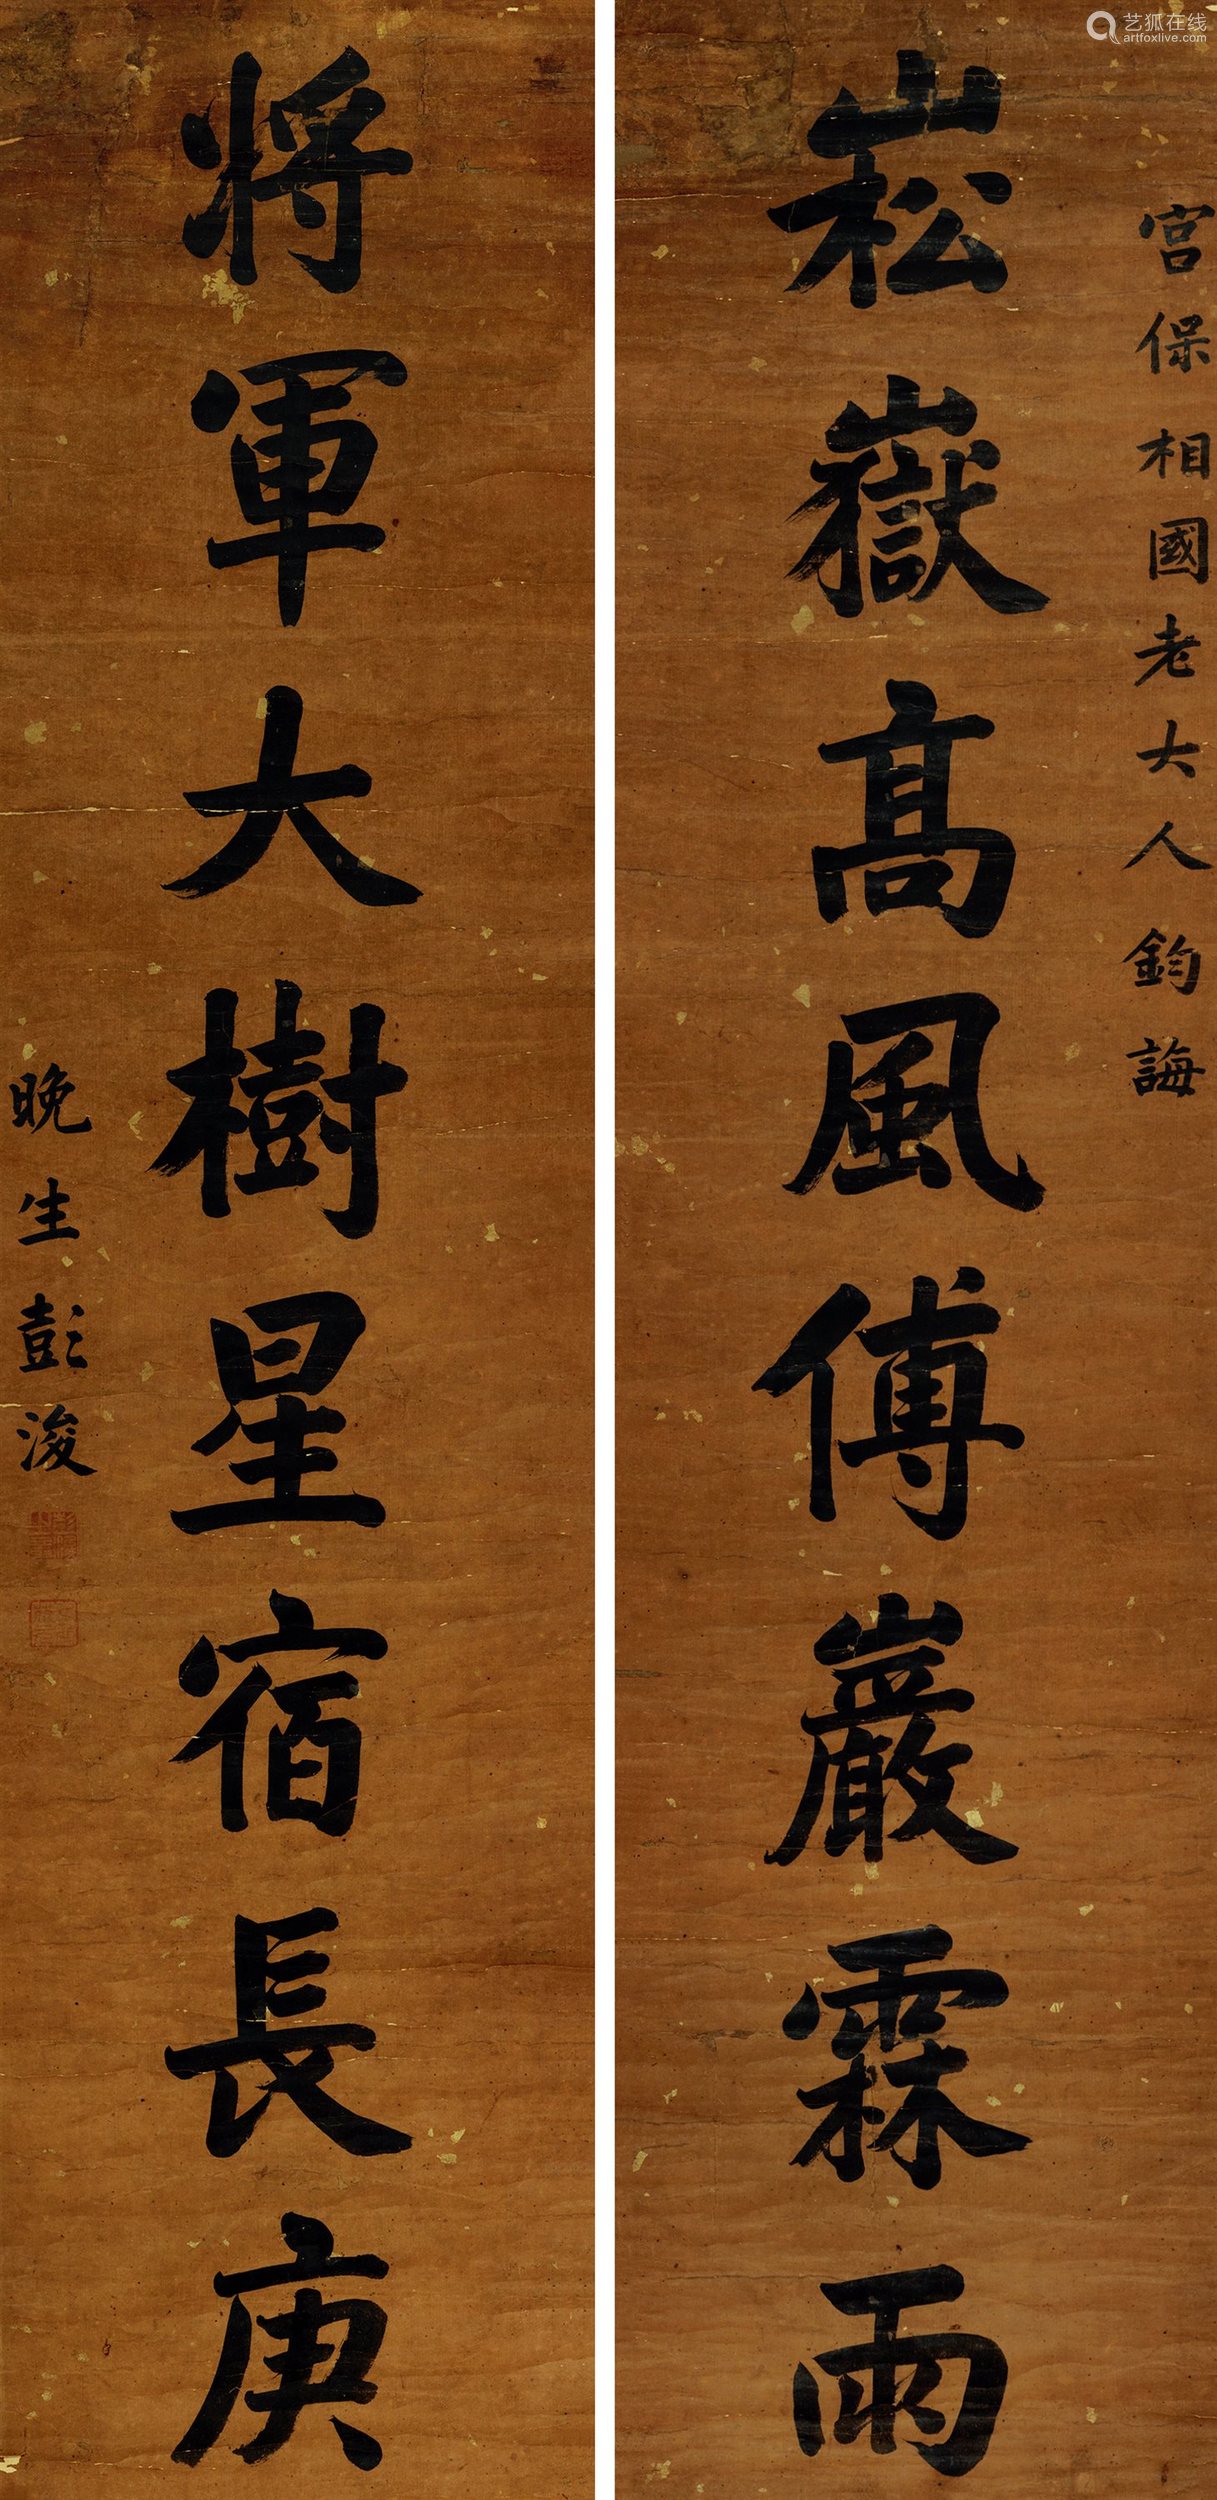 宮保相國老大人鈞誨
崧嶽高風傅巖霖雨
將軍大樹星宿長庚
晚生彭浚
艺狐在线
artfoxlive.com